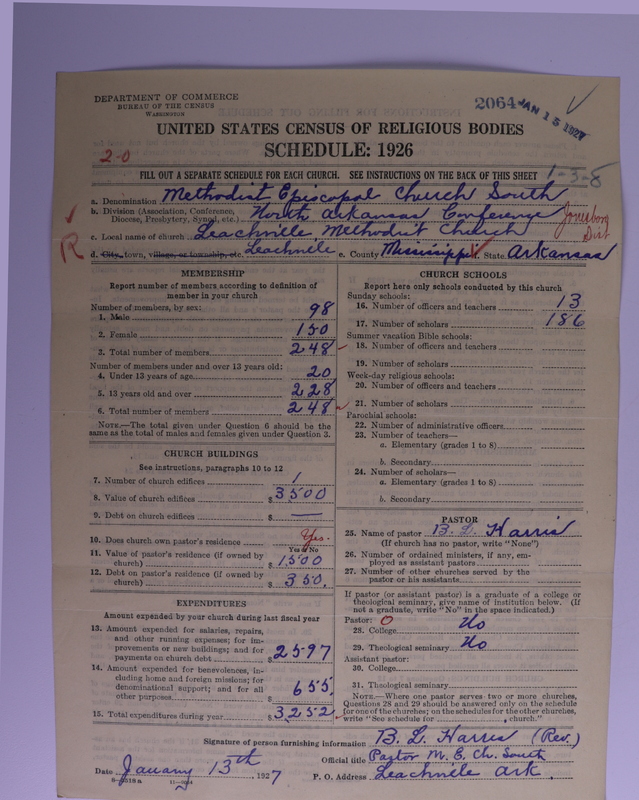 DEPARTMENT OF COMMERCE
BUREAU OF THE CENSUS
WASHINGTON
2064
JAN 15 1927
UNITED STATES CENSUS OF RELIGIOUS BODIES
SCHEDULE: 1926
2-0
FILL OUT A SEPARATE SCHEDULE FOR EACH CHURCH. SEE INSTRUCTIONS ON THE BACK OF THIS SHEET
1-3-8
a. Denomination Methodist Episcopal Church South
b. Division (Association, Conference, Diocese, Presbytery, Synod, etc.) North Arkansas Conference
Jonesboro Dist
c. Local name of church Leachville Methodist Church
R
d. City, town, village, or township, etc. Leachville e. County Mississippi f. State Arkansas
MEMBERSHIP
Report number of members according to definition of
member in your church
Number of members, by sex:
1. Male 98
2. Female 150
3. Total number of members 248
Number of members under and over 13 years old:
4. Under 13 years of age 20
5. 13 years old and over 228
6. Total number of members 248
NOTE.—The total given under Question 6 should be the
same as the total of males and females given under Question 3.
CHURCH BUILDINGS
See instructions, paragraphs 10 to 12
7. Number of church edifices 1
8. Value of church edifices $3500
9. Debt on church edifices $ —
10. Does church own pastor's residence Yes.
Yes or No
11. Value of pastor's residence (if owned by
church) $1500
12. Debt on pastor's residence (if owned by
church) $350.
EXPENDITURES
Amount expended by your church during last fiscal year
13. Amount expended for salaries, repairs,
and other running expenses; for im-
provements or new buildings; and for
payments on church debt $2597
14. Amount expended for benevolences, in-
cluding home and foreign missions; for
denominational support; and for all
other purposes $655
15. Total expenditures during year $3252
CHURCH SCHOOLS
Report here only schools conducted by this church
Sunday schools:
16. Number of officers and teachers 13
17. Number of scholars 186
Summer vacation Bible schools:
18. Number of officers and teachers
19. Number of scholars
Week-day religious schools:
20. Number of officers and teachers
21. Number of scholars
Parochial schools:
22. Number of administrative officers
23. Number of teachers—
a. Elementary (grades 1 to 8)
b. Secondary
24. Number of scholars—
a. Elementary (grades 1 to 8)
b. Secondary
PASTOR
25. Name of pastor B. L. Harris
(If church has no pastor, write "None")
26. Number of ordained ministers, if any, em-
ployed as assistant pastors
27. Number of other churches served by the
pastor or his assistants
If pastor (or assistant pastor) is a graduate of a college or
theological seminary, give name of institution below. (If
not a graduate, write "No" in the space indicated.)
Pastor: 0
28. College No
29. Theological seminary No
Assistant pastor:
30. College
31. Theological seminary
NOTE.—Where one pastor serves two or more churches,
Questions 28 and 29 should be answered only on the schedule
for one of the churches; on the schedules for the other churches,
write "See schedule for church."
Signature of person furnishing information B. L. Harris (Rev.)
Official title Pastor M. E. Ch. South
Date January 13th, 1927
P. O. Address Leachville Ark